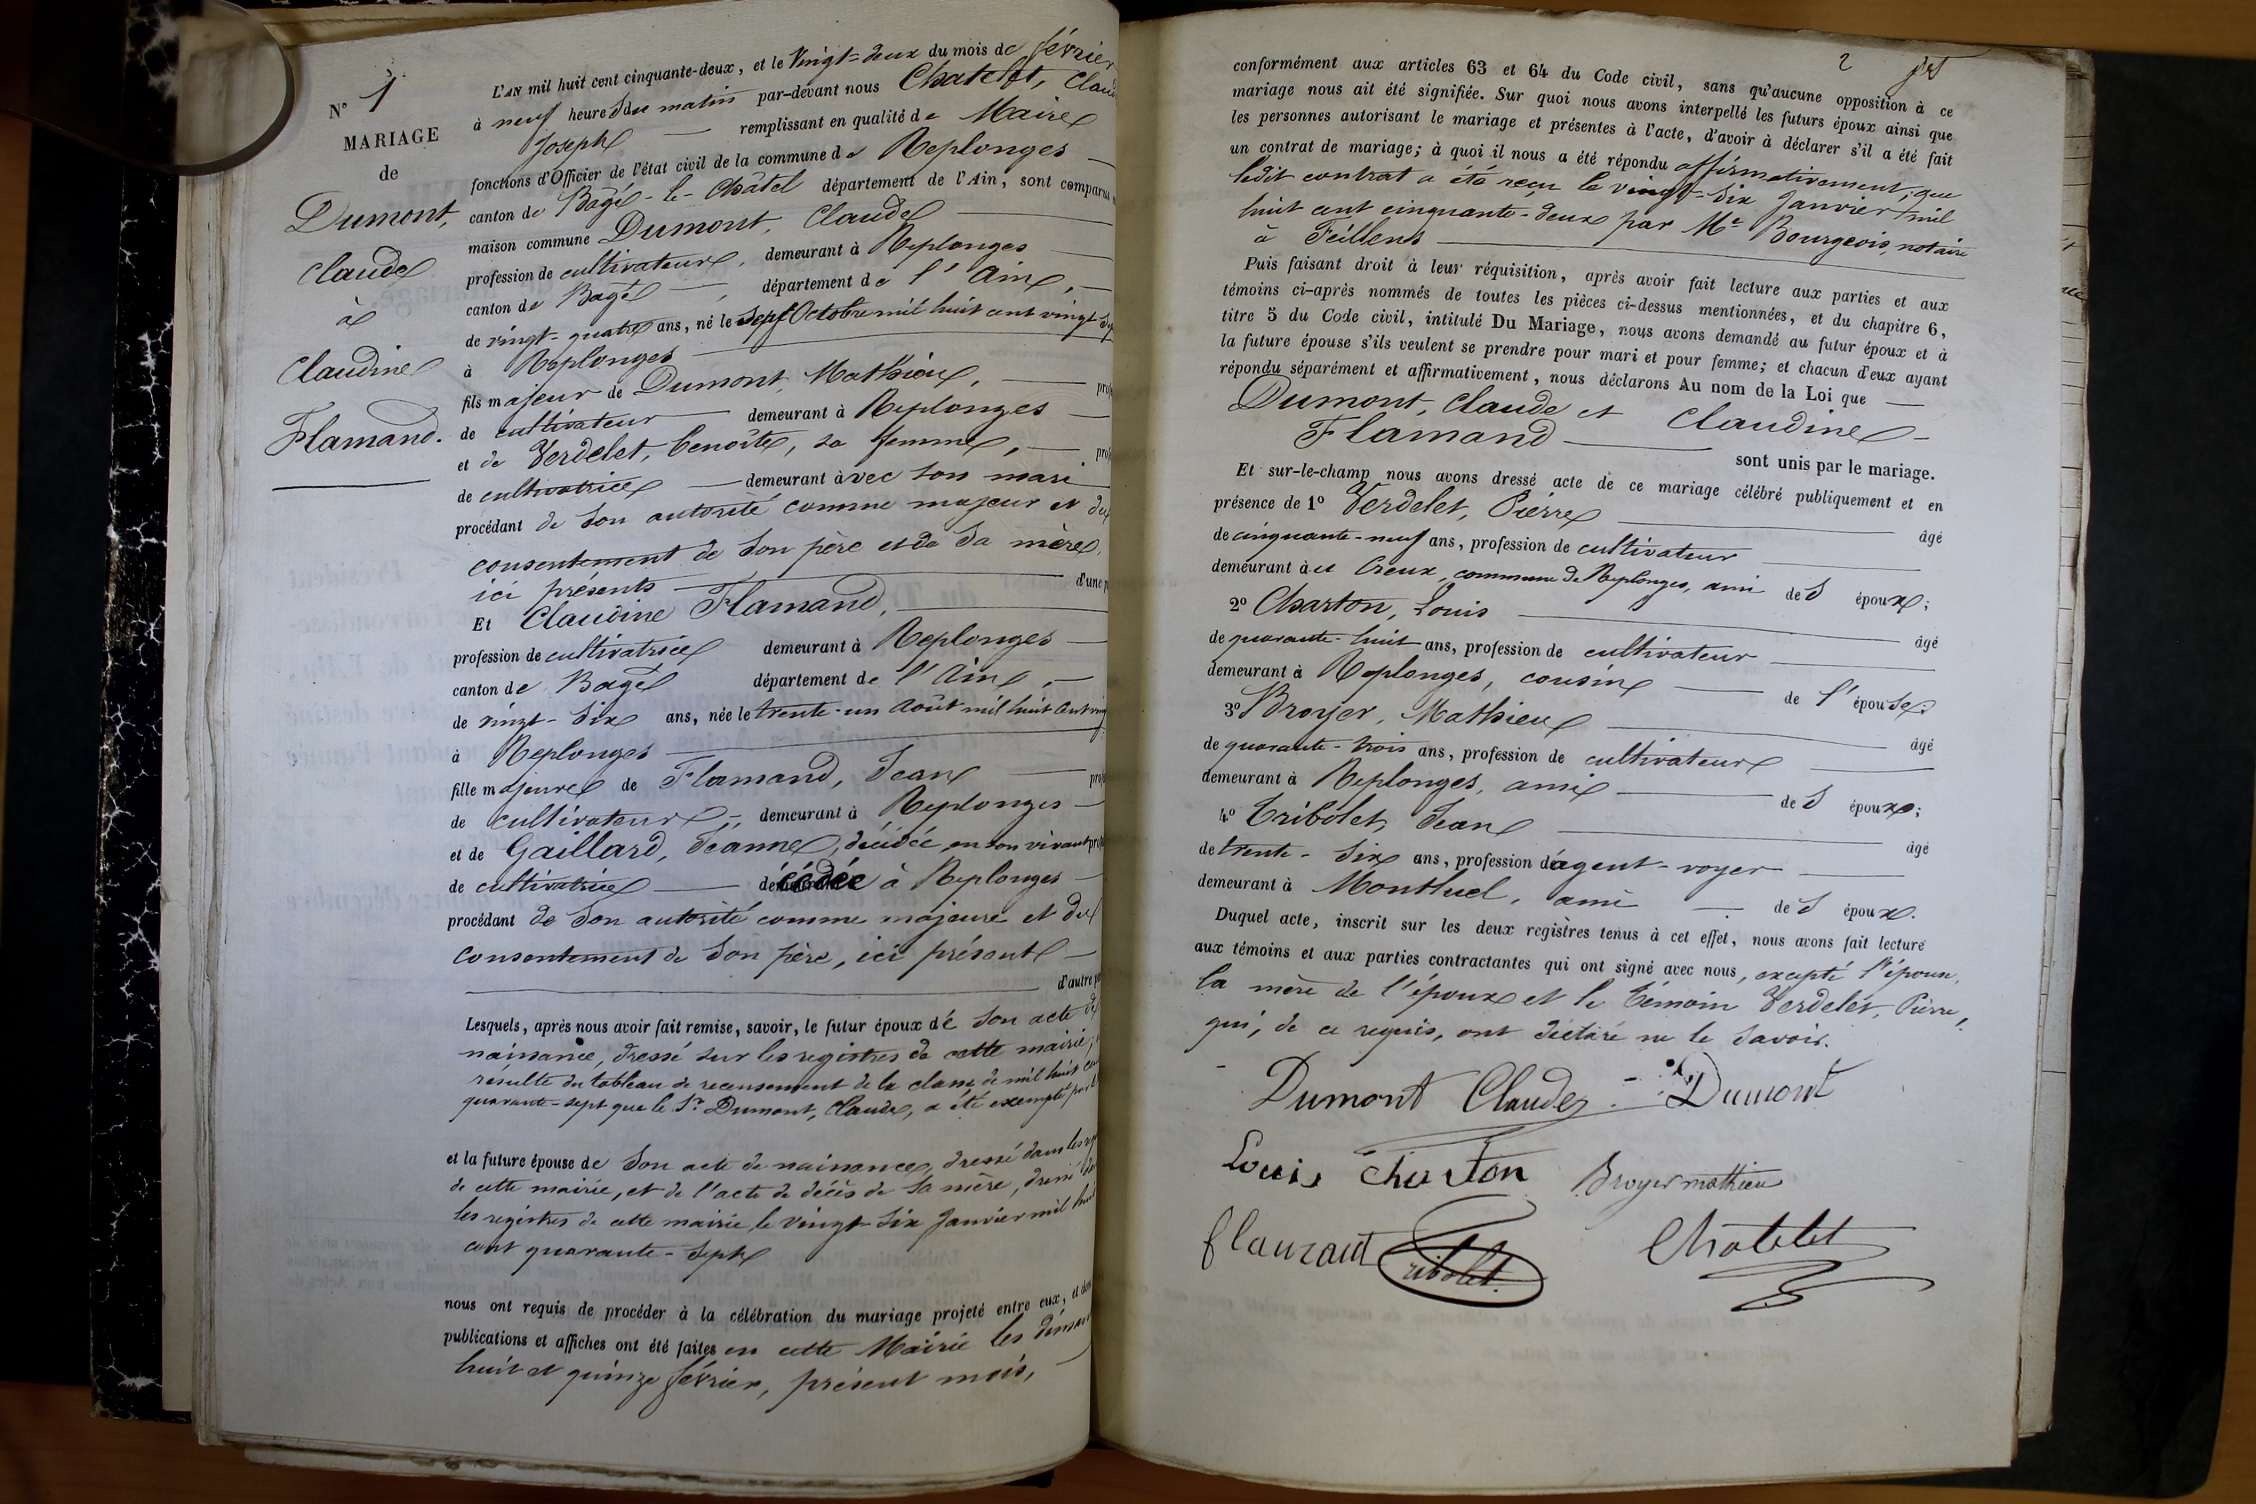 N° 1
MARIAGE
de
Dumont,
Claude
à
Claudine
Flamand.
L'AN mil huit cent cinquante-deux, et le Vingt-deux du mois de février
à neuf heures du matin par-devant nous Chatelet,
Joseph remplissant en qualité de Maire
fonctions d'Officier de l'état civil de la commune de Replonges
canton de Bâgé-le-Châtel département de l'Ain, sont comparus
maison commune Dumont, Claude
profession de cultivateur, demeurant à Replonges
canton de Bagé, département de l'Ain,
de vingt-quatre ans, né le sept Octobre mil huit cent vingt
à Replonges
fils majeur de Dumont, Mathieu,
de cultivateur demeurant à Replonges
et de Verdelet, Benoîte, sa femme,
de cultivatrice demeurant avec son mari
procédant de son autorité comme majeur et du
consentement de son père et de sa mère,
ici présents d'une
Et Claudine Flamand,
profession de cultivatrice demeurant à Replonges
canton de Bagé département de l'Ain,
de vingt-six ans, née le trente-un Août mil huit cent
à Replonges
fille majeure de Flamand, Jean
de cultivateur, demeurant à Replonges
et de Gaillard, Jeanne, décédée, en son vivant
de cultivatrice décédée à Replonges
procédant de son autorité comme majeure et du
consentement de son père, ici présent
d'autre
Lesquels, après nous avoir fait remise, savoir, le futur époux de son acte de
naissance, dressé sur les registres de cette mairie;
résulte du tableau de recensement de la classe de mil huit
quarante-sept que le Sr. Dumont, Claude, a été exempté
et la future épouse de son acte de naissance, dressé dans les
de cette mairie, et de l'acte de décès de sa mère, dressé
les registres de cette mairie le vingt-six Janvier mil huit
cent quarante-sept
nous ont requis de procéder à la célébration du mariage projeté entre eux, et
publications et affiches ont été faites en cette Mairie les
huit et quinze février, présent mois,
2
conformément aux articles 63 et 64 du Code civil, sans qu'aucune opposition à ce
mariage nous ait été signifiée. Sur quoi nous avons interpellé les futurs époux ainsi que
les personnes autorisant le mariage et présentes à l'acte, d'avoir à déclarer s'il a été fait
un contrat de mariage; à quoi il nous a été répondu affirmativement; que
ledit contrat a été reçu le vingt-six Janvier mil
huit cent cinquante-deux par Me Bourgeois, notaire
à Feillens
Puis faisant droit à leur réquisition, après avoir fait lecture aux parties et aux
témoins ci-après nommés de toutes les pièces ci-dessus mentionnées, et du chapitre 6,
titre 5 du Code civil, intitulé Du Mariage, nous avons demandé au futur époux et à
la future épouse s'ils veulent se prendre pour mari et pour femme; et chacun d'eux ayant
répondu séparément et affirmativement, nous déclarons Au nom de la Loi que
Dumont, Claude et Claudine
Flamand sont unis par le mariage.
Et sur-le-champ nous avons dressé acte de ce mariage célébré publiquement et en
présence de 1° Verdelet, Pierre âgé
de cinquante-neuf ans, profession de cultivateur
demeurant à Creux, commune de Replonges, ami des époux;
2° Charton, Louis âgé
de quarante-huit ans, profession de cultivateur
demeurant à Replonges, cousin de l'épouse;
3° Broyer, Mathieu âgé
de quarante-trois ans, profession de cultivateur
demeurant à Replonges, ami des époux;
4° Tribolet, Jean âgé
de trente-six ans, profession d'agent-voyer
demeurant à Montluel, ami des époux.
Duquel acte, inscrit sur les deux registres tenus à cet effet, nous avons fait lecture
aux témoins et aux parties contractantes qui ont signé avec nous, excepté l'épouse,
la mère de l'époux et le témoin Verdelet, Pierre,
qui, de ce requis, ont déclaré ne le savoir.
Dumont Claude Dumont
Louis Charton Broyer mathieu
flamand Tribolet Chatelet